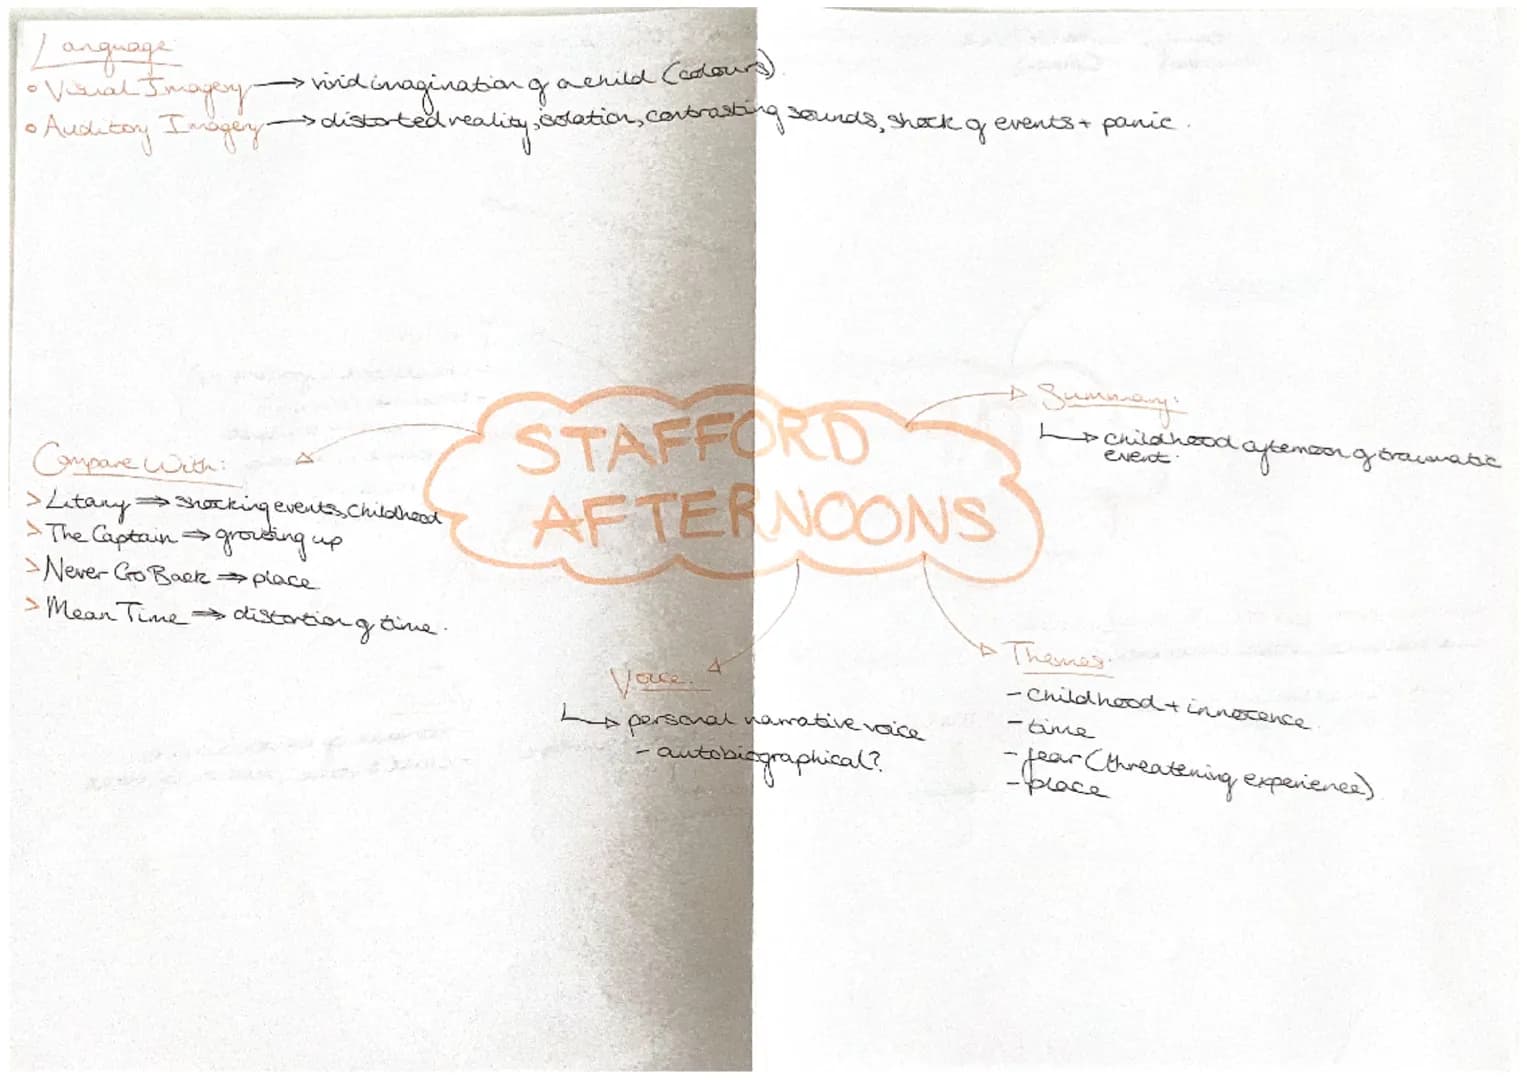 Language
• Visual Imagery → vivid imagination of a child (colours)
• Auditory Imagery → distorted reality, isolation, contrasting sounds, shock of events + panic.
STAFFORD
AFTERNOONS
Summary:
↳ childhood afternoon of traumatic
event.
Compare With:
> Litany ⇒ shocking events, childhood
> The Captain ⇒ growing up
> Never Go Back ⇒ place
> Mean Time ⇒ distortion of time.
Voice.
↳ personal narrative voice
- autobiographical?
Themes.
- childhood + innocence
- time
- fear (threatening experience)
- place